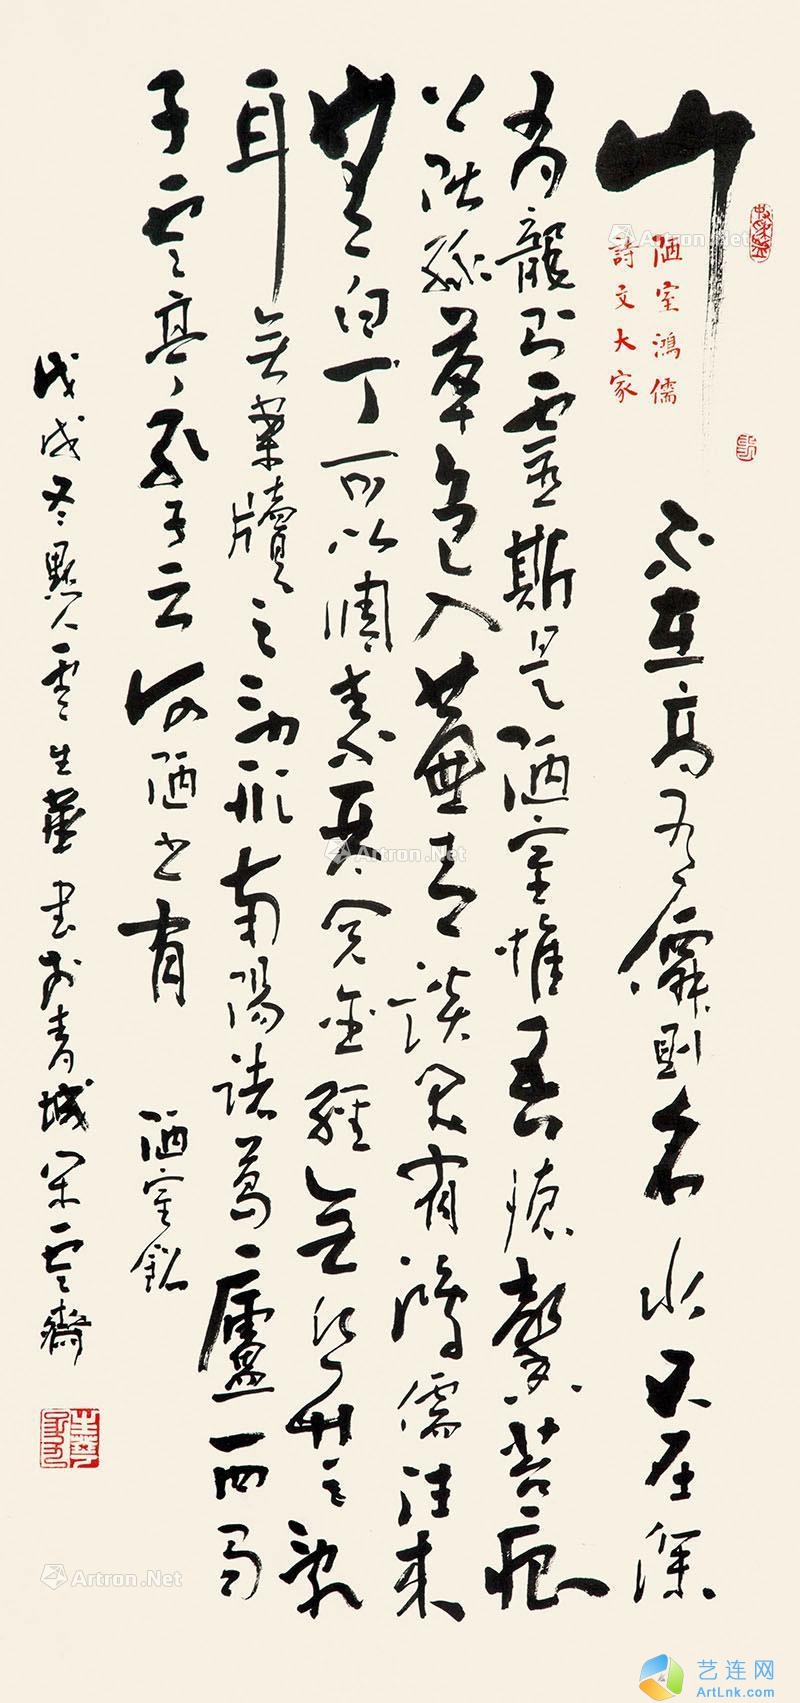 山不在高有僊則名水不在深
陋室鴻儒
詩文大家
有龍則靈斯是陋室惟吾德馨苔痕
上階綠草色入簾青談笑有鴻儒往來
無白丁可以調素琴閱金經無絲竹之亂
耳無案牘之勞形南陽諸葛廬西蜀
子雲亭孔子云何陋之有 陋室銘
戊戌冬人雲生華書於青城雲齋
Artron.Net
Artron.Net
Artron.Net
Artron.Net
Artron.Net
艺连网
ArtLnk.com